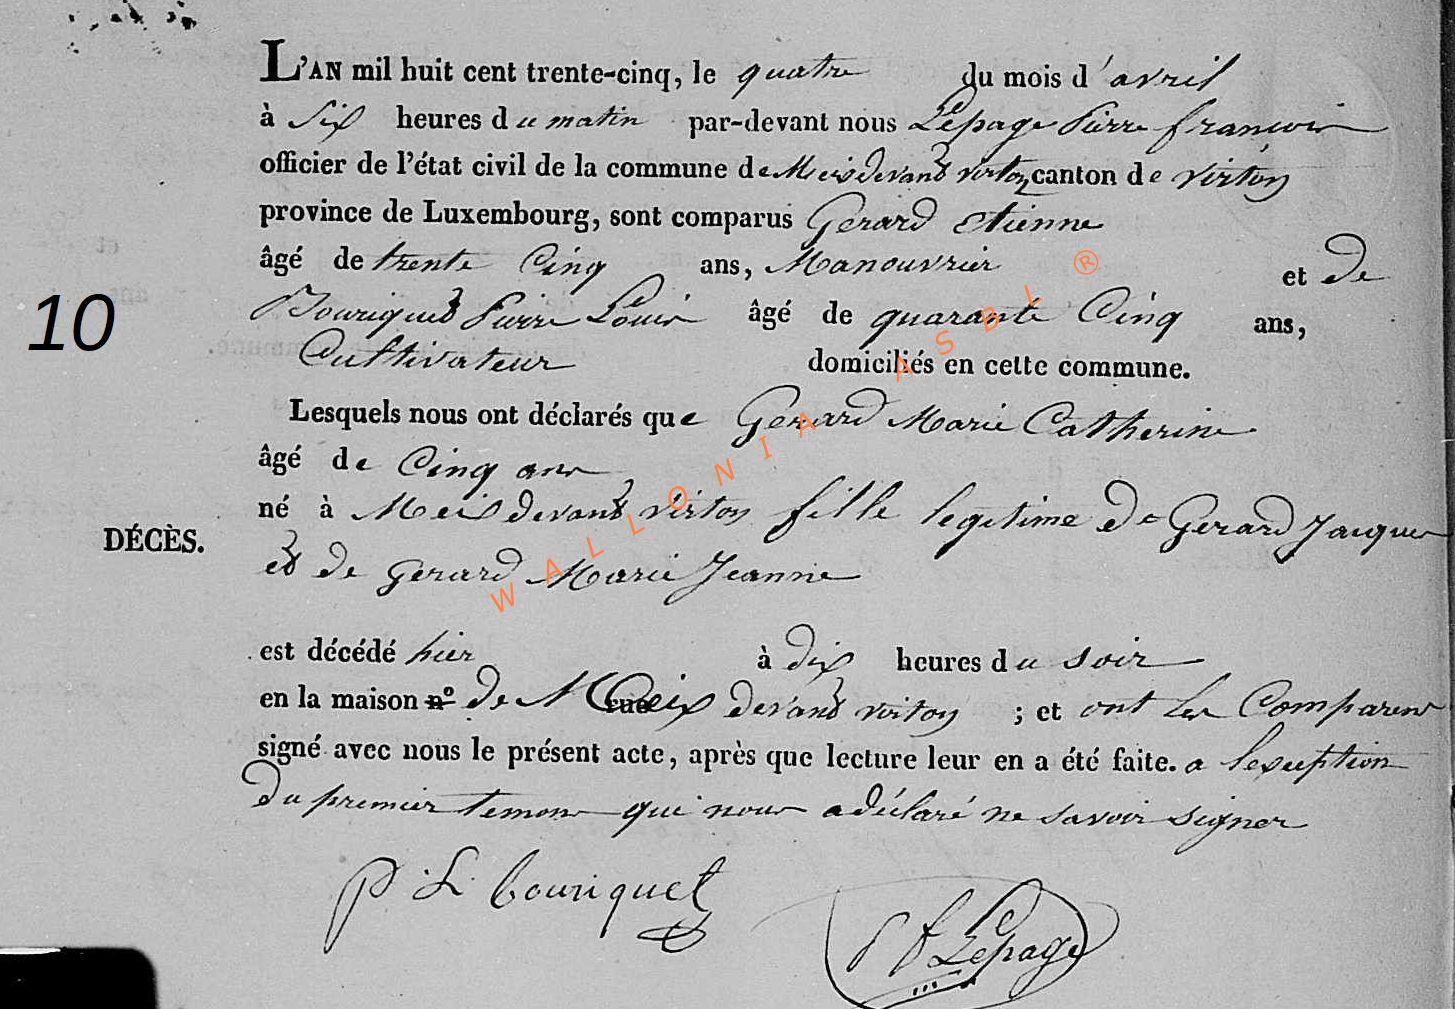 L'AN mil huit cent trente-cinq, le quatre du mois d'avril
à Six heures du matin par-devant nous Lepage Pierre françois
officier de l'état civil de la commune de Meix devant virton canton de virton
province de Luxembourg, sont comparus Gerard Etienne
âgé de trente Cinq ans, Manouvrier et de
Bouriquet Pierre Louis âgé de quarante Cinq ans,
10
Cultivateur domiciliés en cette commune.
Lesquels nous ont déclarés que Gerard Marie Catherine
âgé de Cinq ans
né à Meix devant virton fille legitime de Gerard Jacques
DÉCÈS.
et de Gerard Marie Jeanne
est décédé hier à dix heures du soir
en la maison nº de Meix rue devant virton ; et ont les Comparens
signé avec nous le présent acte, après que lecture leur en a été faite. a lexeption
du premier temoins qui nous a déclaré ne savoir signer
P. L. bouriquet
P f Lepage
WALLONIA ASBL ®